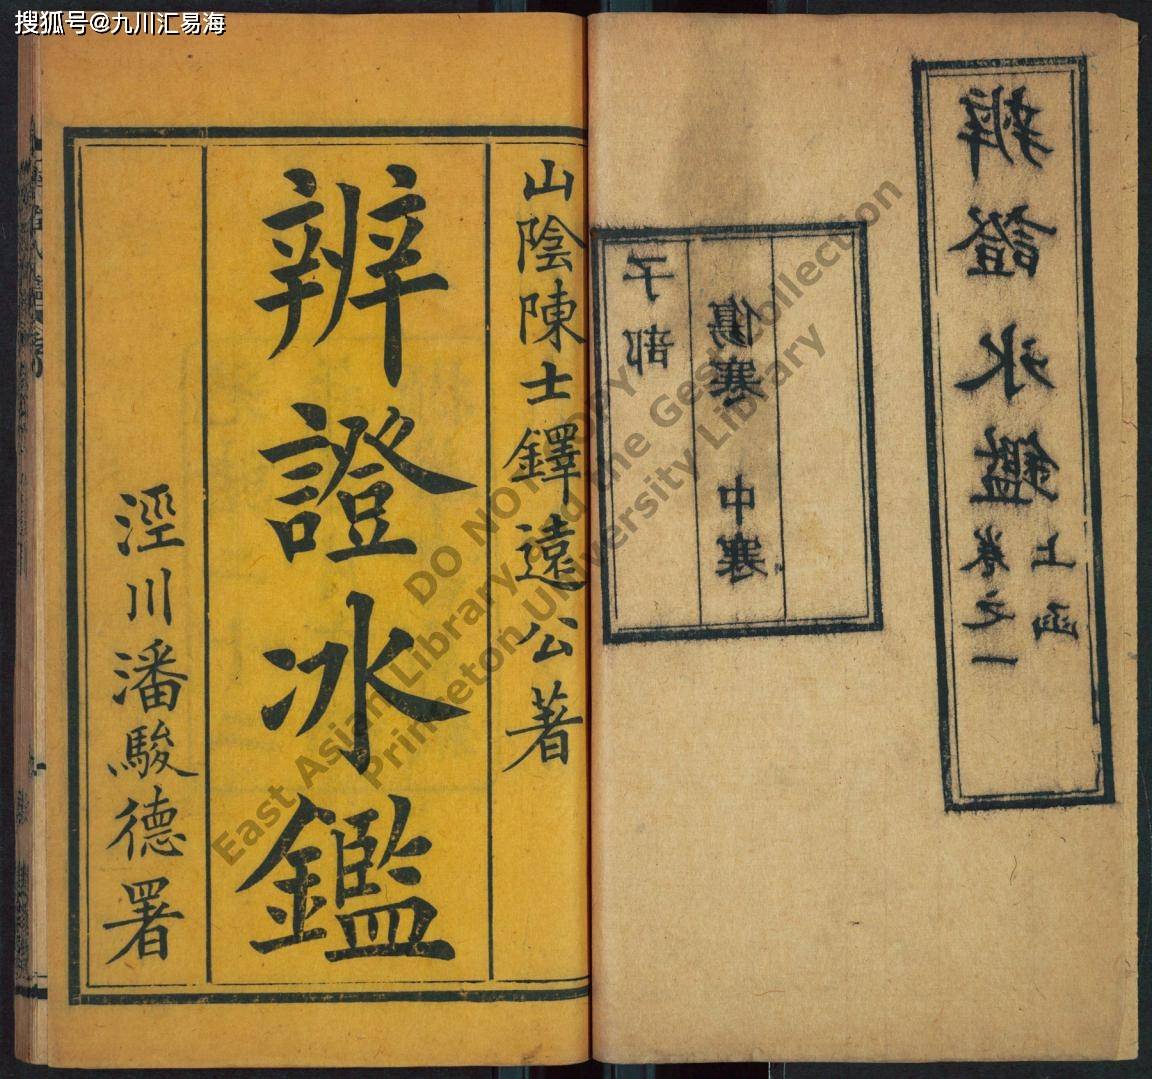 搜狐号@九川汇易海
辨證氷鑑
上函
卷之一
子部
傷寒 中寒
山陰陳士鐸遠公著
辨證冰鑑
涇川潘駿德署
East Asian Library and the Gest Collection
Princeton University Library
DO NOT COPY